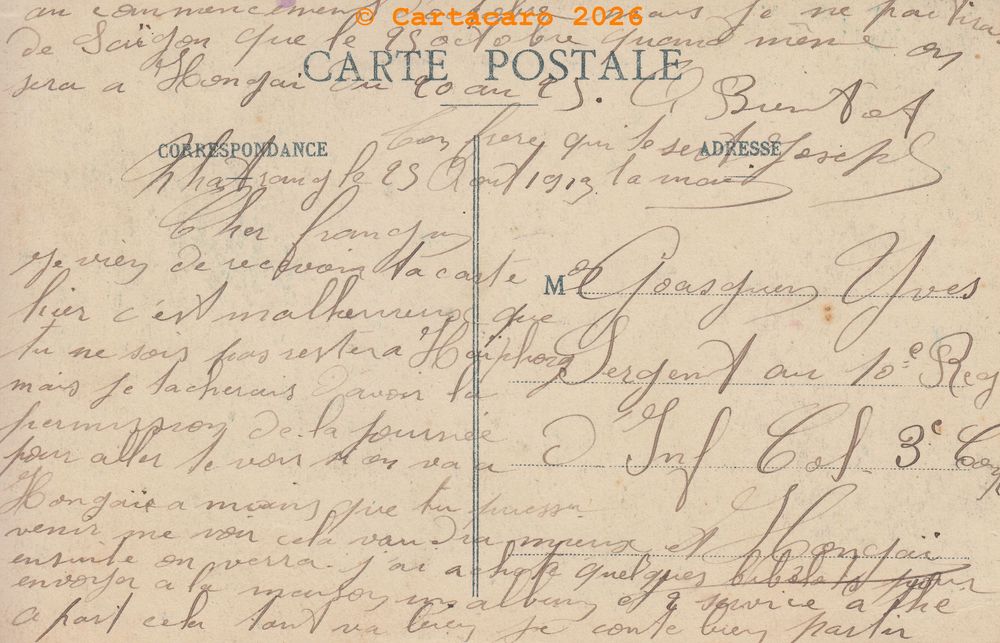 © Cartacaro 2026
au commencement d'octobre mais je ne partirai
de Saïgon que le 25 octobre quand même on
sera a Hongaï du 20 au 25. A Bientot
CARTE POSTALE
Ton frere qui te sert Joseph
la main
CORRESPONDANCE
ADRESSE
Nhatrang le 23 Aout 1913
Cher françois
je viens de recevoir ta carte
hier c'est malheureux que
tu ne sois pas rester a Haïphong
mais je tacherais d'avoir la
permission de la journée
pour aller te voir si on va a
Hongaï a moins que tu puisse
venir me voir cela vaudra mieux et
ensuite on verra. j'ai acheté quelques bibelots pour
envoyer a la maison un album et 2 service a thé
a part cela tout va bien je conte bien partir
M Goasguen Yves
Sergent au 10e Reg
d Inf Col. 3e Comp
Hongaï